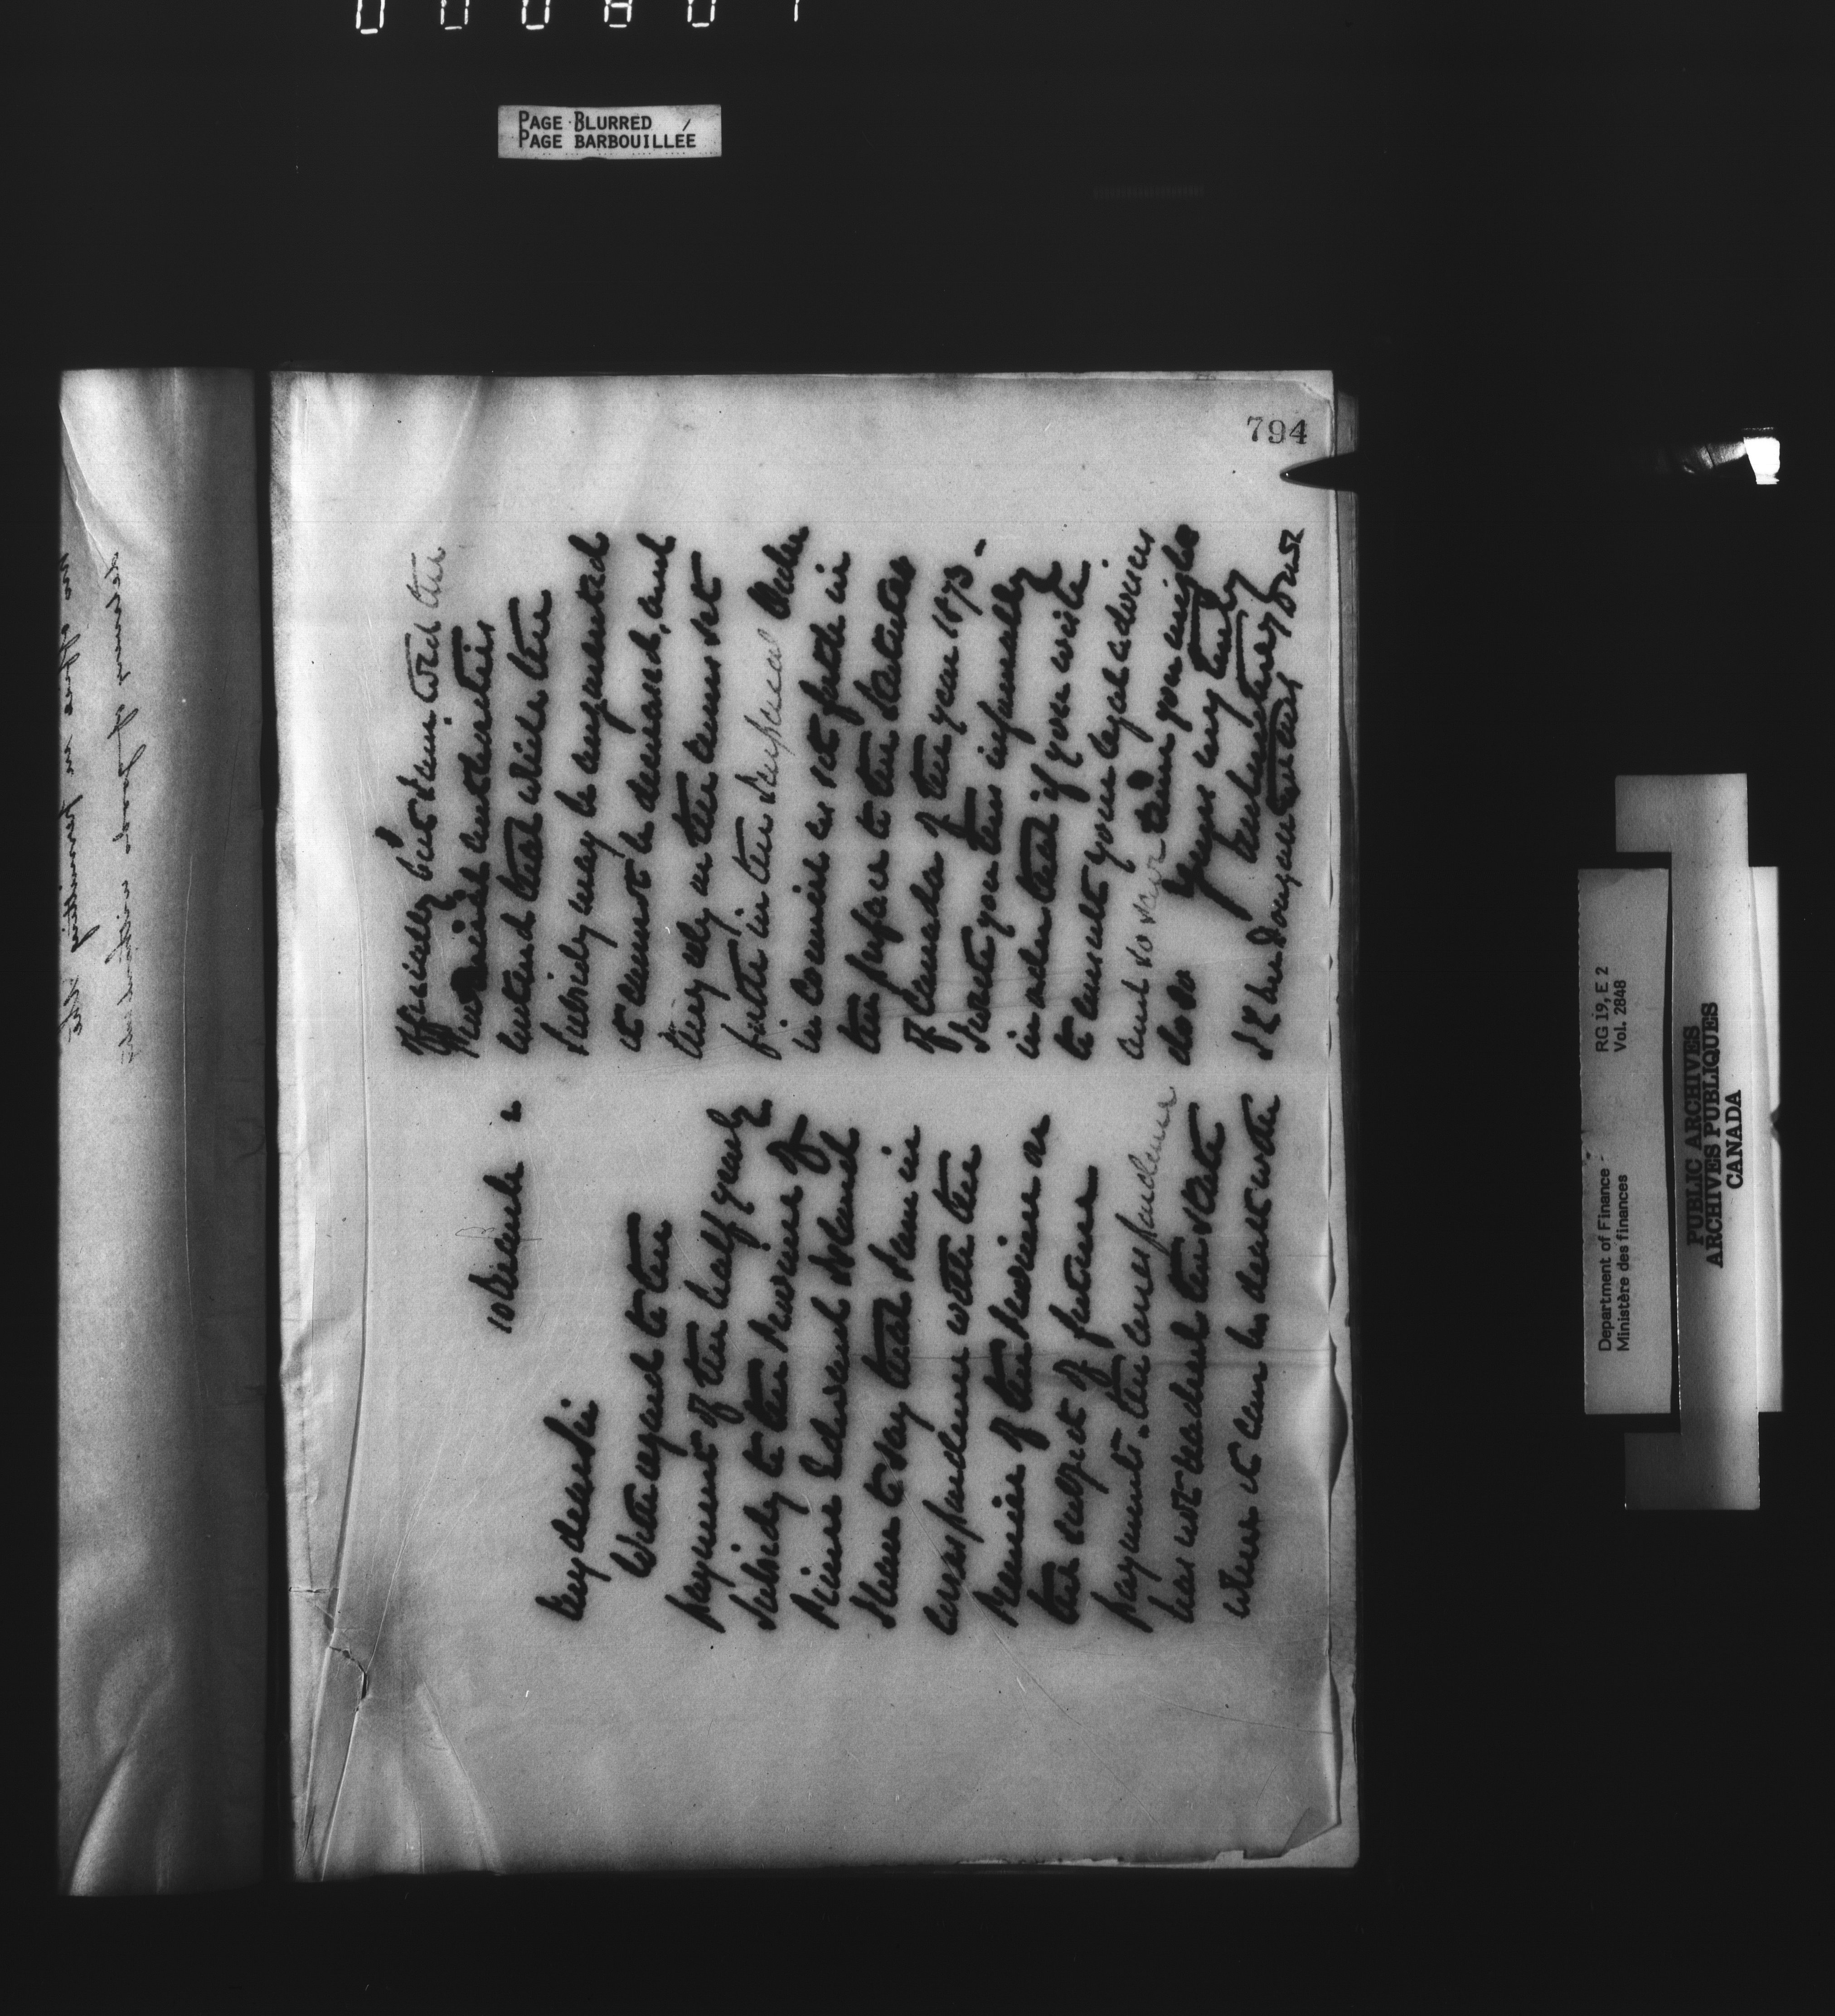 PAGE BLURRED
PAGE BARBOUILLÉE
794
10 March 2
My dear Sir
With regard to the
payment of the half yearly
subsidy to the Province of
Prince Edward Island
I have to say that I am in
correspondence with the
Premier of the Province on
the subject of future
payments. the correspondence
has not reached the state
where it can be dealt with
officially but I am told the
authorities
contend that while the
subsidy may be augmented
it cannot be decreased, and
they rely on the terms set
forth in the Imperial Order
in Council as set forth in
the preface to the Statutes
of Canada of the year 1873.
I write you this informally
in order that if you wish
to consult your legal advisers
and so save time you might
do so
Yours very truly
Department of Finance
Ministère des finances
RG 19, E 2
Vol. 2848
PUBLIC ARCHIVES
ARCHIVES PUBLIQUES
CANADA